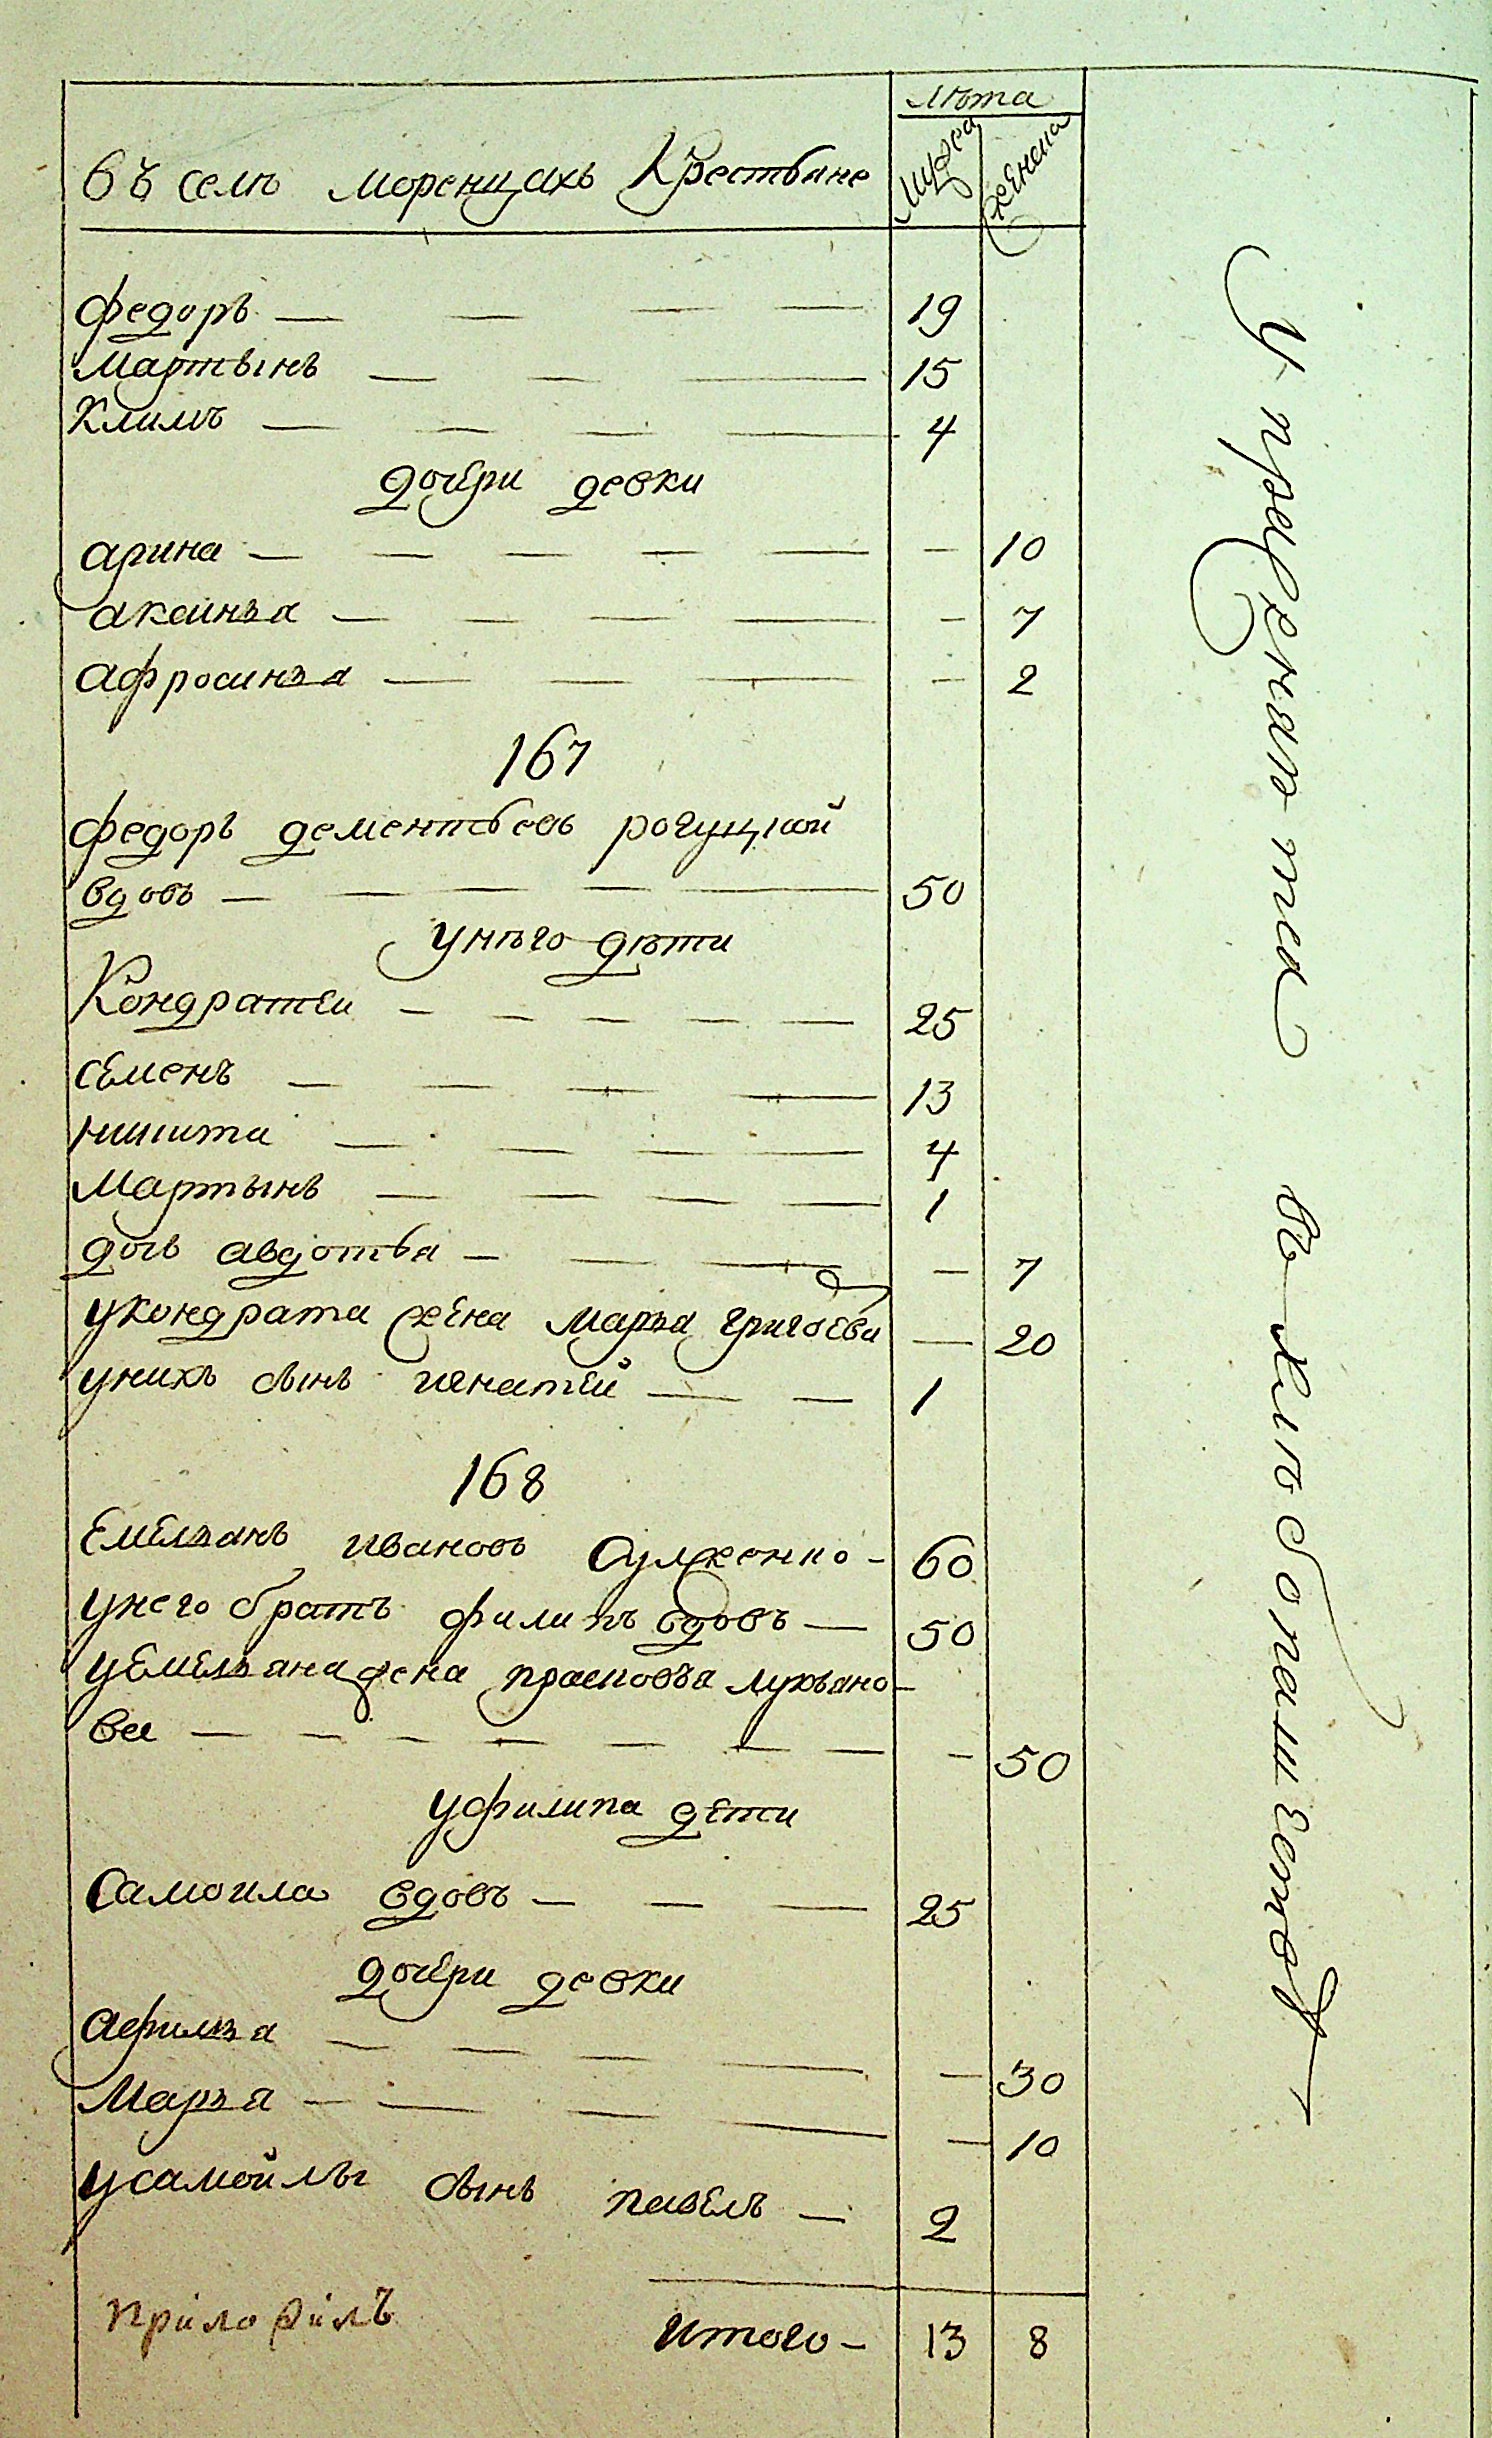 лѣта
въ селѣ моренцахъ Крестьяне мужеска женска
федоръ — — — — 19
мартынъ — — — 15
климъ — — — — 4
дочери девки
арина — — — — — — 10
аксинья — — — — — 7
афросинья — — — — 2
167
федоръ дементьевъ рогуцкой
вдовъ — — — — — 50
у него дѣти
Кондратеи — — — — — 25
семенъ — — — — 13
никита — — — — 4
мартынъ — — — — 1
дочь авдотья — — — — 7
укондрата жена марья григорева — 20
унихъ сынъ игнатей — — 1
168
емельянъ ивановъ сулженко — 60
унего братъ филипъ вдовъ — 50
уемельяна жена прасковья лукьяно-
ва — — — — — — — — 50
уфилипа дети
самоила вдовъ — — — 25
дочери девки
афимья — — — — — 30
марья — — — — — 10
усамойлы сынъ павелъ — 2
приложилъ
итого — 13 8